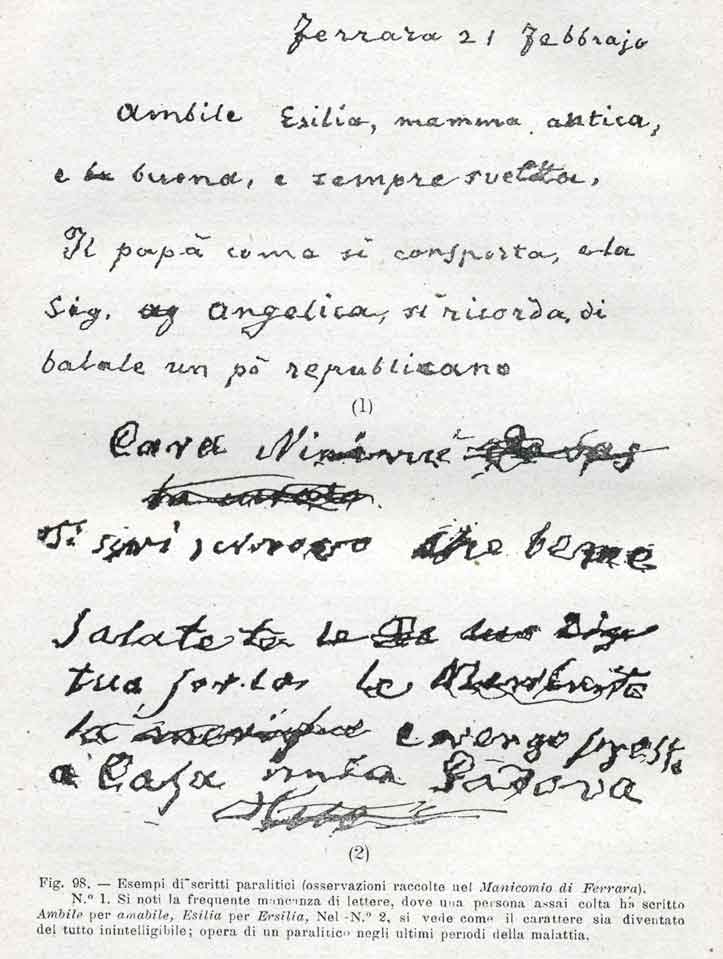 Ferrara 21 Febbrajo
Ambile Esilia, mamma antica,
e buona, e sempre sveltta,
Il papà coma si consporta, e la
Sig. ag Angelica, si ricorda, di
balale un pò republicano
(1)
Cara
Ti scrivi che bene
Salate te le
tua le
la e vengo
a Casa mia Padova
(2)
Fig. 98. — Esempi di scritti paralitici (osservazioni raccolte nel Manicomio di Ferrara).
N.º 1. Si noti la frequente mancanza di lettere, dove una persona assai colta ha scritto
Ambile per amabile, Esilia per Ersilia, Nel N.º 2, si vede come il carattere sia diventato
del tutto inintelligibile; opera di un paralitico negli ultimi periodi della malattia.